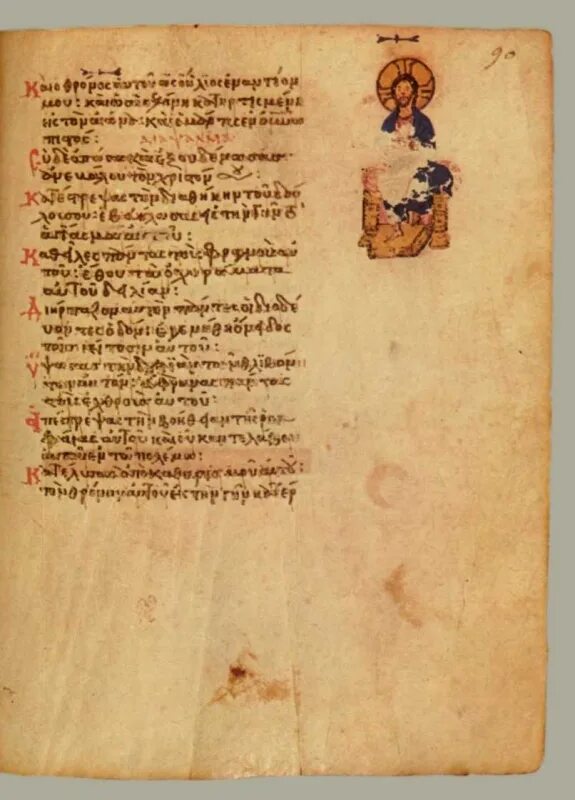 Καὶ ὁ θρόνος αὐτοῦ ὡς ὁ ἥλιος ἐναντίον
μου: καὶ ὡς ἡ σελήνη κατηρτισμένη
εἰς τὸν αἰῶνα: καὶ ὁ μάρτυς ἐν οὐνω
πιστός: διαψαλμα
Σὺ δὲ ἀπώσω καὶ ἐξουδένωσας
ἀνεβάλου τὸν χριστόν σου
Κατέστρεψας τὴν διαθήκην τοῦ δού
λου σου: ἐβεβήλωσας εἰς τὴν γῆν τὸ
ἁγίασμα αὐτοῦ:
Καθεῖλες πάντας τοὺς φραγμοὺς αὐ
τοῦ: ἔθου τὰ ὀχυρώματα
αὐτοῦ δειλίαν:
Διήρπαζον αὐτὸν πάντες οἱ διοδεύ
οντες ὁδόν: ἐγενήθη ὄνειδος
τοῖς γείτοσιν αὐτοῦ:
Ὕψωσας τὴν δεξιὰν τῶν θλιβόν
των αὐτόν: εὔφρανας πάντας
τοὺς ἐχθροὺς αὐτοῦ:
Ἀπέστρεψας τὴν βοήθειαν τῆς ῥομ
φαίας αὐτοῦ καὶ οὐκ ἀντελάβου
αὐτοῦ ἐν τῷ πολέμω:
Κατέλυσας ἀπὸ καθαρισμοῦ αὐτόν:
τὸν θρόνον αὐτοῦ εἰς τὴν γῆν κατέρ
90